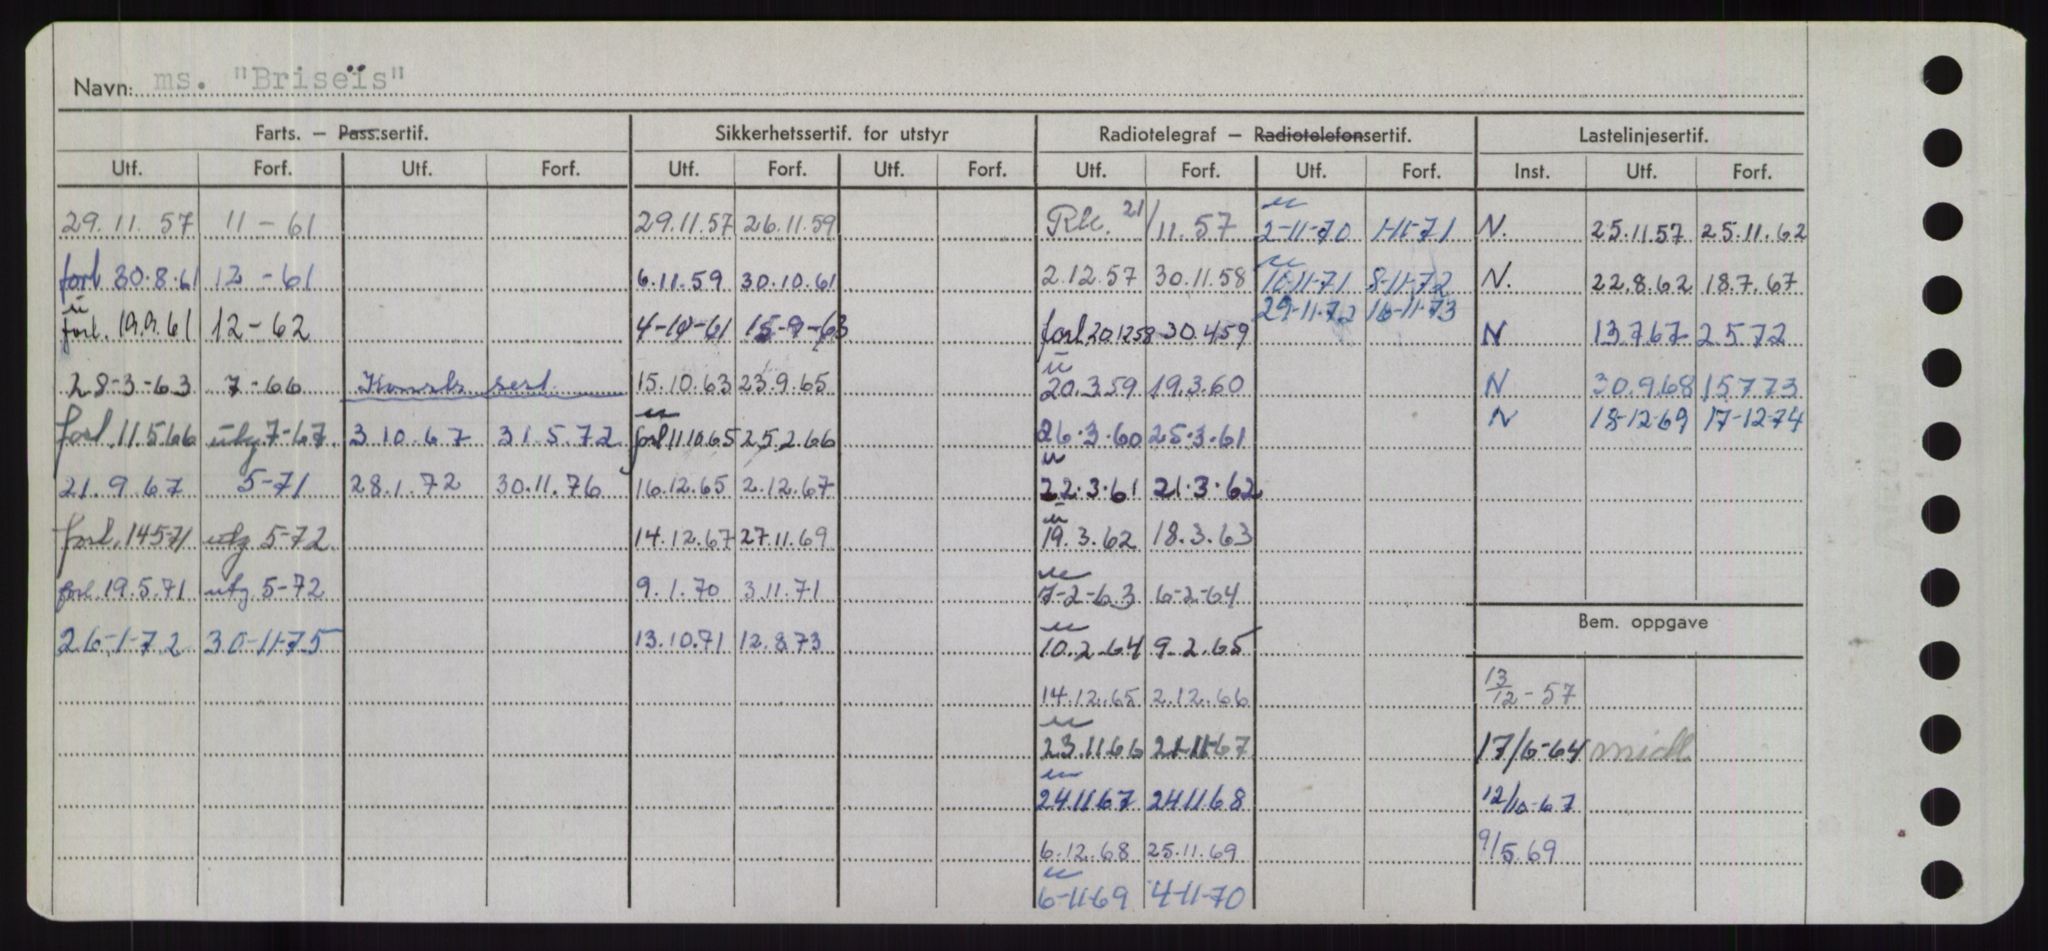 Navn: ms. "Briseïs"
Farts. — Pass.sertif. Sikkerhetssertif. for utstyr Radiotelegraf — Radiotelefonsertif. Lastelinjesertif.
Utf. Forf. Utf. Forf. Utf. Forf. Utf. Forf. Utf. Forf. Utf. Forf. Inst. Utf. Forf.
29.11.57 11-61 29.11.57 26.11.59 Rk. 21/11.57 2-11-70 1-11-71 N. 25.11.57 25.11.62
forl 30.8.61 12-61 6.11.59 30.10.61 2.12.57 30.11.58 10-11-71 8-11-72 N. 22.8.62 18.7.67
29-11-72 16-11-73
forl. 19.9.61 12-62 4-10-61 15-9-63 forl 20.12.58 30.4.59 N 13.7.67 2.5.72
28-3-63 7-66 sert. 15.10.63 23.9.65 20.3.59 19.3.60 N 30.9.68 15.7.73
forl. 11.5.66 utg 7-67. 3.10.67 31.5.72 forl 11.10.65 25.2.66 26.3.60 25.3.61 N 18-12-69 17-12-74
21.9.67 5-71 28.1.72 30.11.76 16.12.65 2.12.67 22.3.61 21.3.62
forl. 14.5-71 utg 5-72 14.12.67 27.11.69 19.3.62 18.3.63
forl. 19.5.71 utg. 5-72 9.1.70 3.11.71 7-2-63 6-2-64
Bem. oppgave
26-1-72 30-11-75 13.10.71 12.8.73 10.2.64 9.2.65
14.12.65 2.12.66 13/12-57
23.11.66 21-11-67 17/6-64 midl
24.11.67 24.11.68 12/10-67
6.12.68 25.11.69 9/5.69
6-11-69 4-11-70